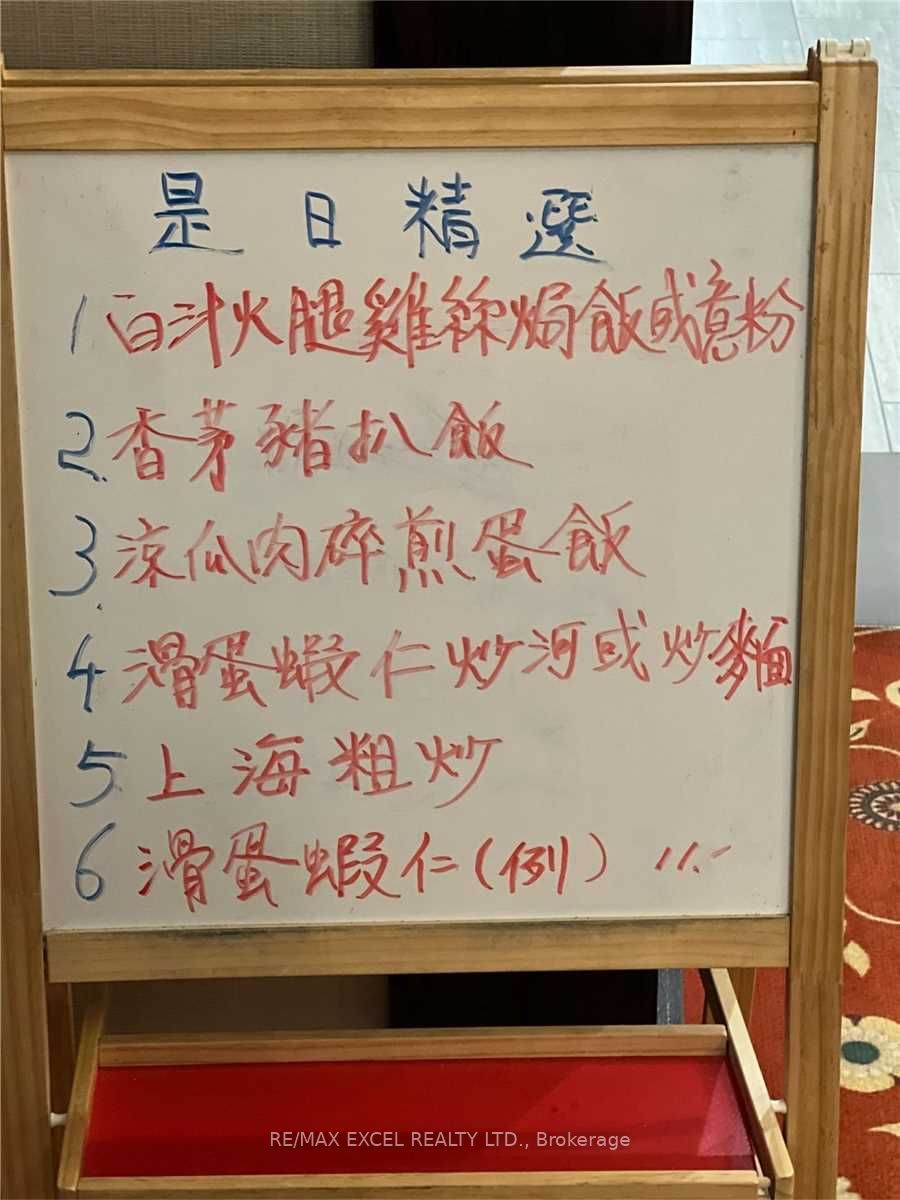 是日精選
1 白汁火腿雞絲焗飯或意粉
2. 香茅豬扒飯
3. 涼瓜肉碎煎蛋飯
4 滑蛋蝦仁炒河或炒麵
5 上海粗炒
6 滑蛋蝦仁(例) 11.-
RE/MAX EXCEL REALTY LTD., Brokerage